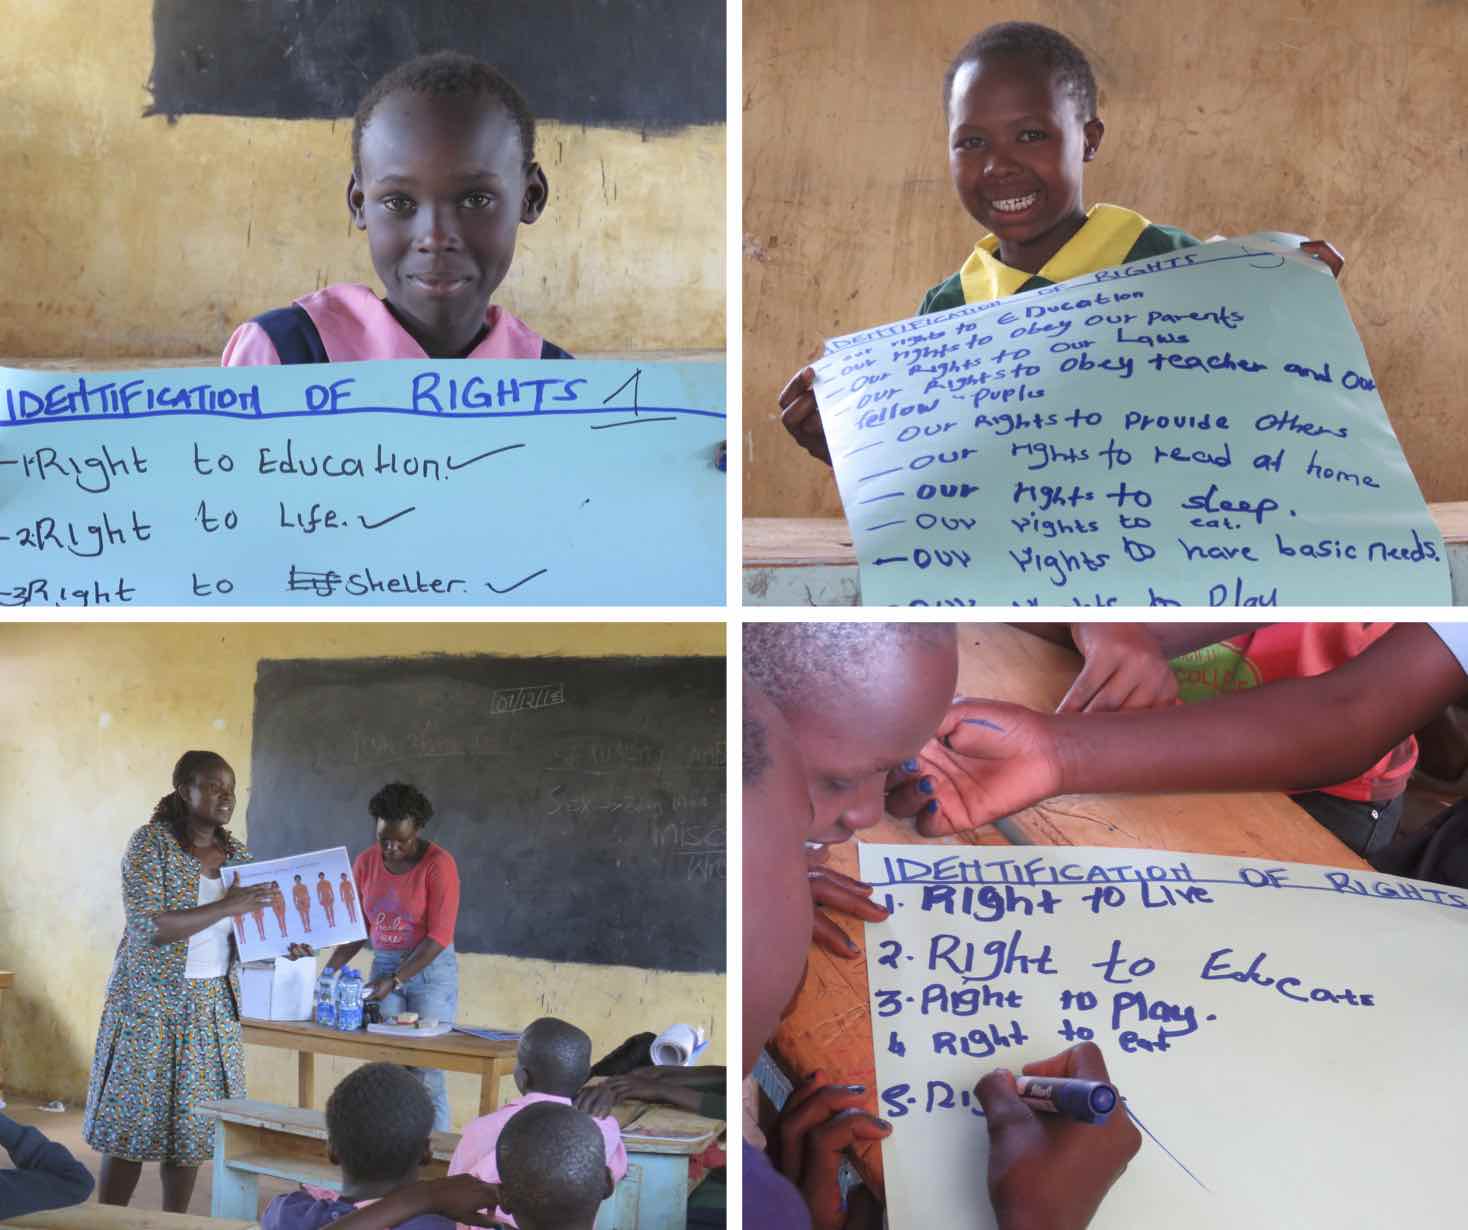 IDENTIFICATION OF RIGHTS 1
-1.Right to Education.
-2.Right to Life.
-3.Right to Shelter.
IDENTIFICATION OF RIGHTS
- our rights to EDucation
- our rights to obey our parents
- Our Rights to Our Laws
- Our Rights to obey teacher and Our
fellow pupils
- OUR Rights to Provide Others
- OUr rights to read at home
- OUr rights to sleep.
- OUr rights to eat.
- OUr rights to have basic needs.
rights to play
07/12/18
Sex
COLLEGE
IDENTIFICATION OF RIGHTS
1. Right to Live
2. Right to Educate
3. Right to Play.
4 Right to eat
5. Rig